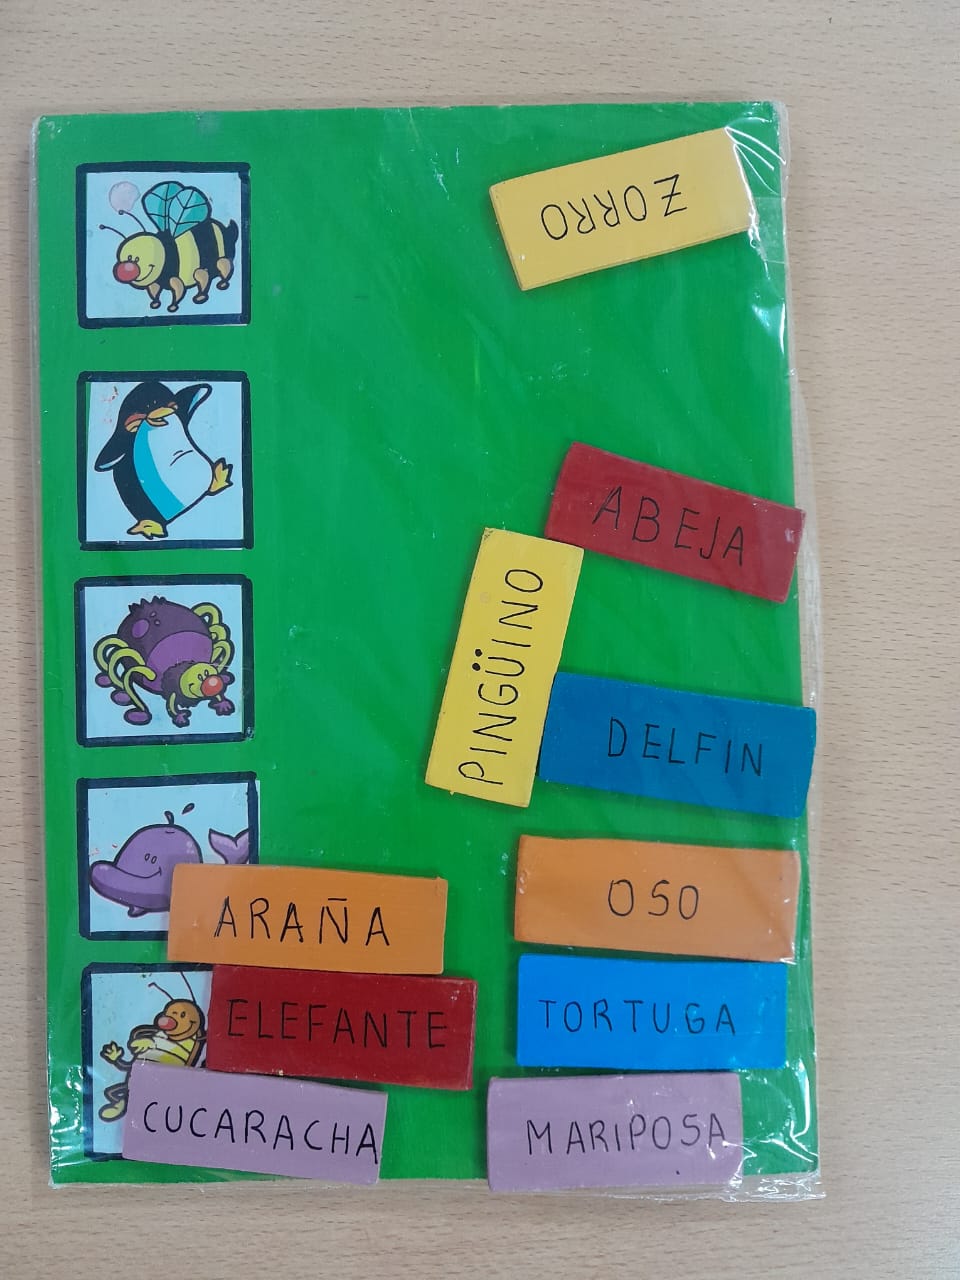 CUCARACHA
ELEFANTE
ARAÑA
PINGÜINO
MARIPOSA
TORTUGA
OSO
DELFIN
ABEJA
ZORRO